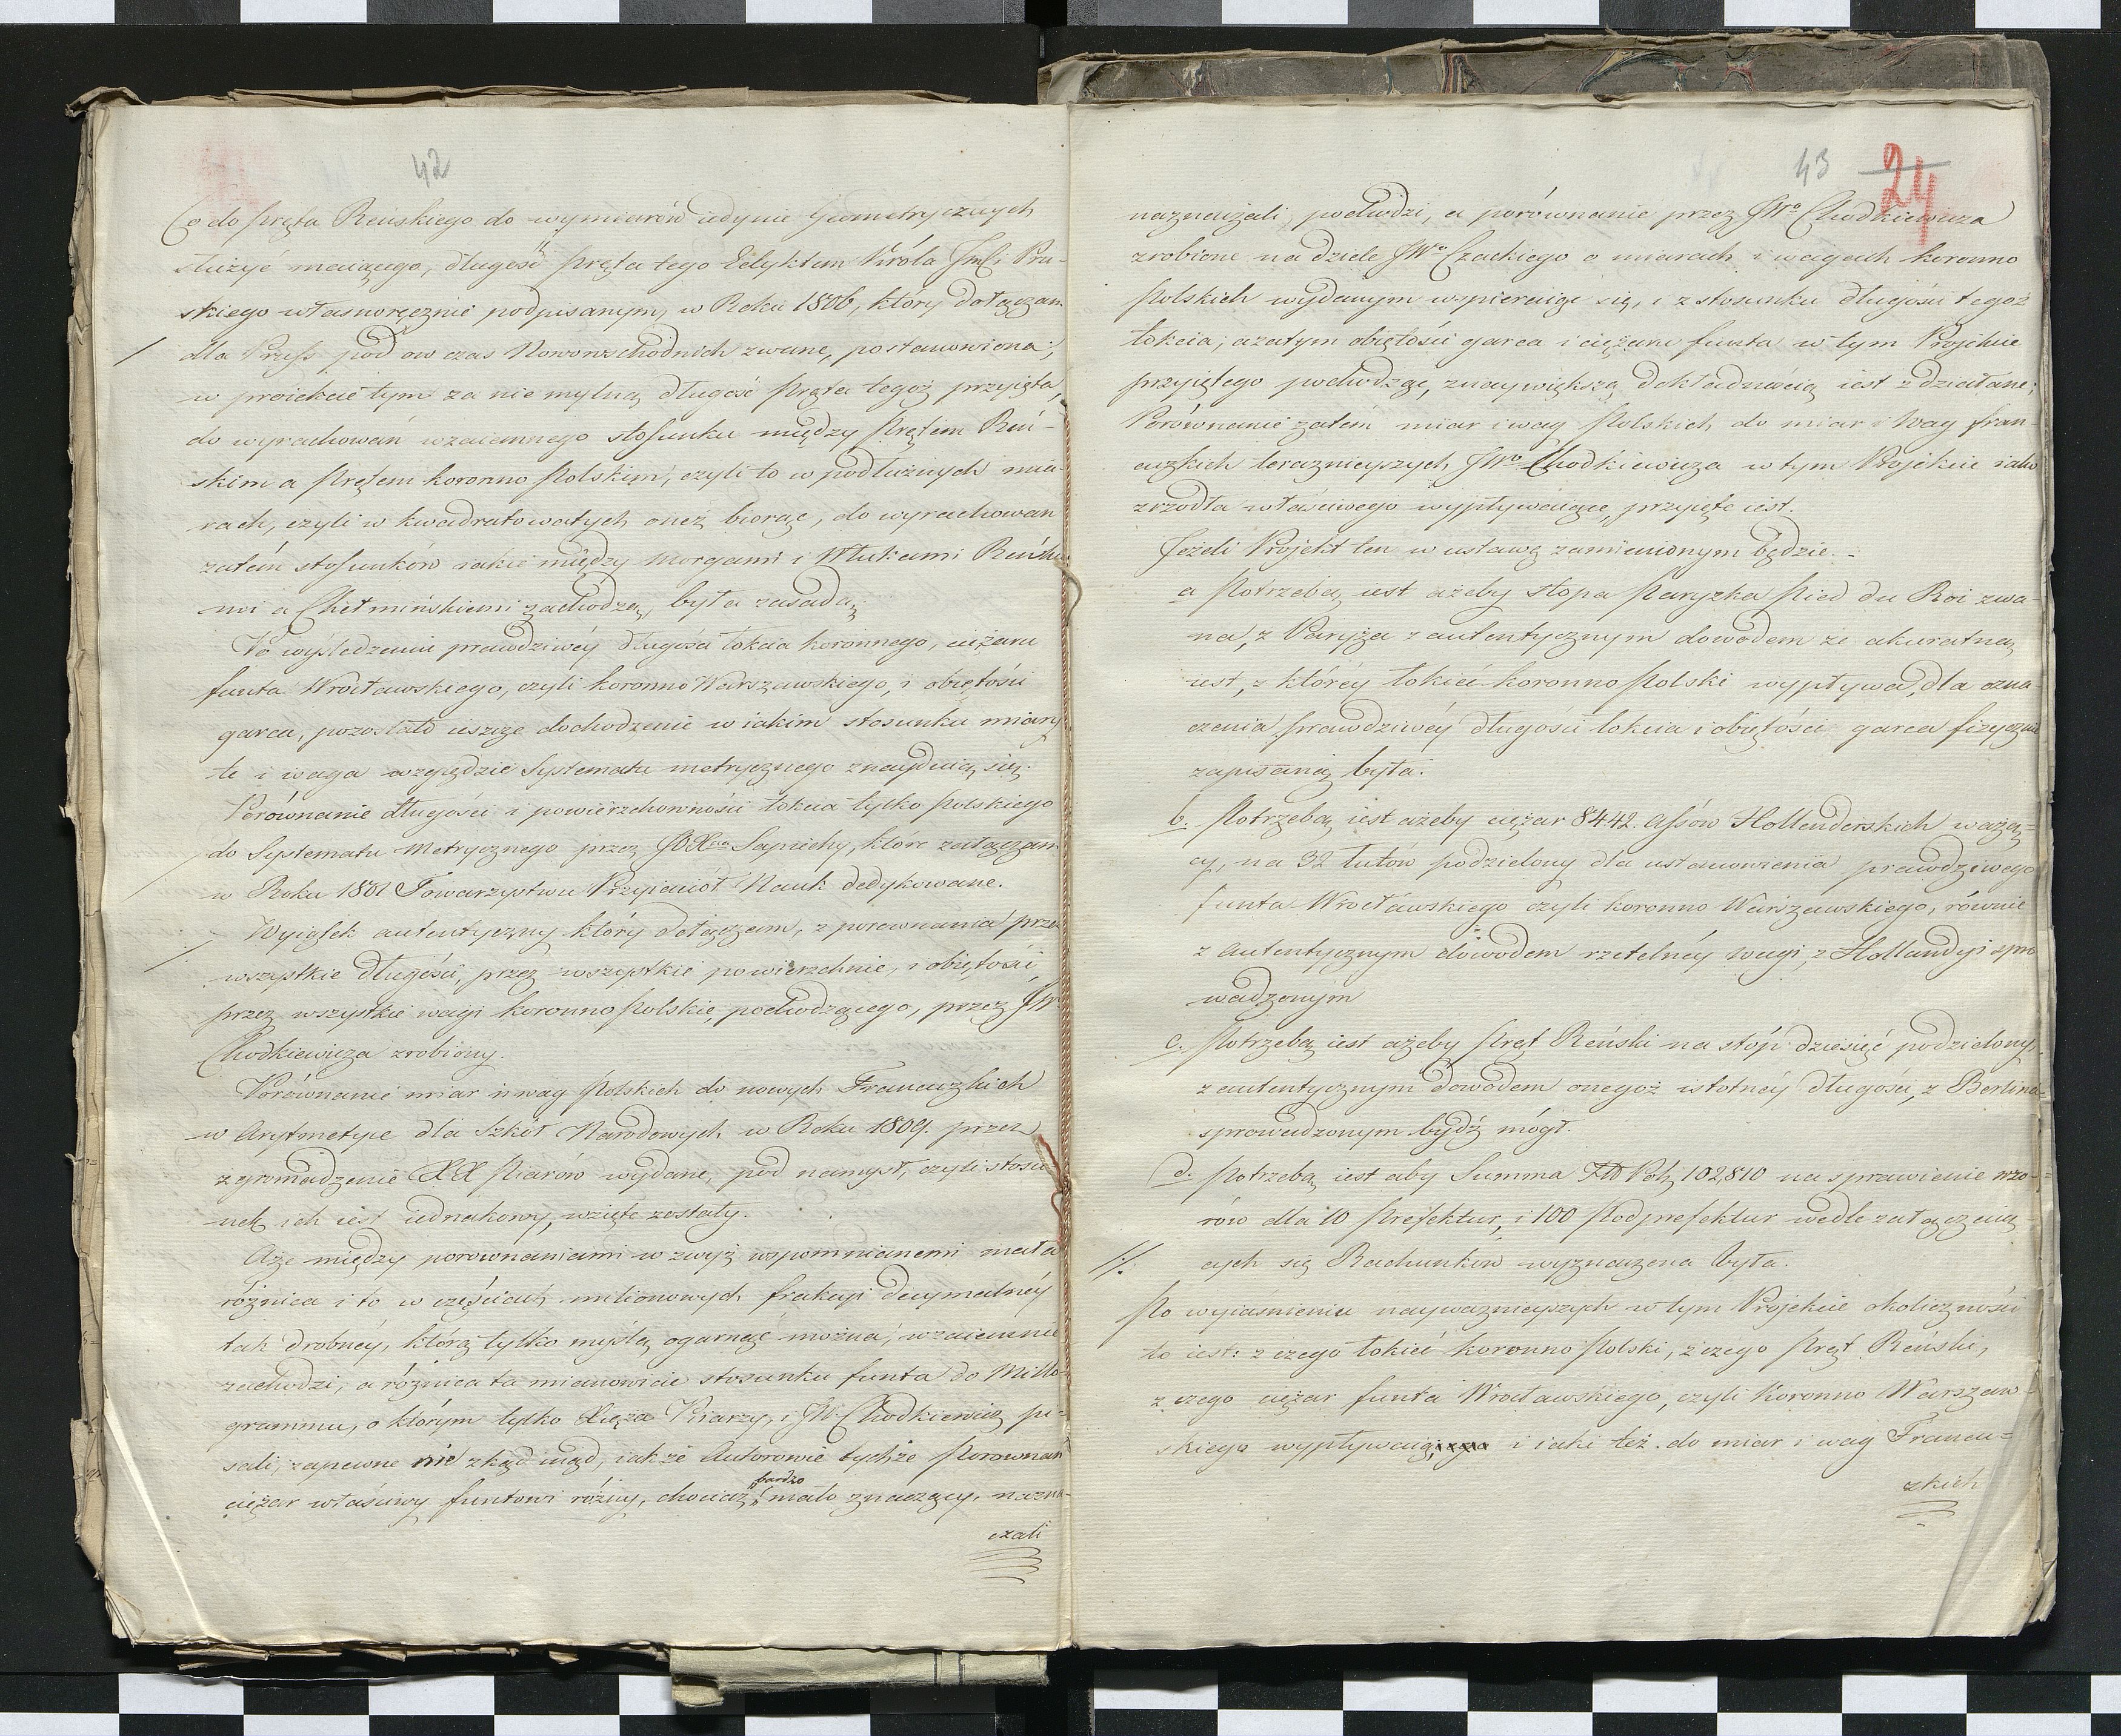 42
Co do Pręta Reńskiego do wymiarów iedynie Geometrycznych
służyć maiącego, długość Pręta tego Edyktem Króla Jmści Pru-
skiego własnoręcznie podpisanym, w Roku 1806, który dołączam
/ dla Pruss pod ow czas Nowowschodnich zwane, postanowiona;
w proiekcie tym za nie mylną długość Pręta tegoż przyięta,
do wyrachowań wzaiemnego stosunku między Prętem Reń-
skim a Prętem koronno Polskim, czyli to w podłużnych mia-
rach, czyli w kwadratowatych oneż biorąc, do wyrachowan
zatém stosunków iakie między Morgami i Włukami Reńskie
mi a Chełmińskiemi zachodzą, była zasadą.
Po wyśledzeniu prawdziwéy długości łokcia koronnego, ciężaru
funta Wrocławskiego, czyli koronno Warszawskiego, i obiętości
garca, pozostało ieszcze dochodzenie w iakim stosunku miary
te i waga względzie Systematu metrycznego znayduią się.
Porównanie długości i powierzchowności łokcia tylko Polskiego
/ do Systematu Metrycznego przez JOXcia Sapiehy, które załączam
w Roku 1801 Towarzystwu Przyiaciół Nauk dedykowane.
Wyiątek autentyczny który dołączam, z porownania prze
/ wszystkie długości, przez wszystkie powierzchnie, i obiętości,
przez wszystkie wagi koronno Polskie, pochodzącego, przez JW
Chodkiewicza zrobiony.
Porównanie miar i wag Polskich do nowych Francuzkich
w Arytmetyce dla Szkół Narodowych w Roku 1809. przez
zgromadzenie XX Piarów wydane, pod namysł, czyli stosu
nek ich iest iednakowy, wzięte zostały.
Aże między porownaniami wzwyż wspomnianemi mała
różnica i to w częściach milionowych frakcyi decymalnéy
tak drobnéy, którą tylko myślą ogarnąć można, wzaiemnie
zachodzi, a różnica ta mianowicie stosunku funta do Millo-
grammu, o którym tylko Xięża Piarzy, i JW Chodkiewicz pi=
sali, zapewne nie zkąd inąd, iak że Autorowie tychże Porownań
ciężar właściwy funtowi różny, chociaż bardzo mało znaczący, nazna-
czali
43 24
naznaczali, pochodzi, a porównanie przez JWo Chodkiewicza
zrobione na dziele JWo Czackiego o miarach i wagach koronno
Polskich wydanym wspieraiąc się, i z stosunku długości tegoż
łokcia, azatym obiętości garca i ciężaru funta w tym Projekcie
przyiętego pochodząc, znaywiększą dokładnością iest zdziałane;
Porównanie zatém miar i wag Polskich do miar i Wag fran-
cuzkich teraznieyszych JWo Chodkiewicza w tym Projekcie iako
zrzodła właściwego wypływaiące, przyięte iest.
Jeżeli Projekt ten w ustawę zamienionym będzie. -
a Potrzebą iest ażeby stopa Paryzka Pied du Roi zwa-
na, z Paryża z autentycznym dowodem że akuratna
iest, z któréy łokieć koronno Polski wypływa, dla ozna-
czenia prawdziwéy długości łokcia i obiętości garca fizycznie
zapisaną była.
b. Potrzebą iest ażeby ciężar 8442. Assów Hollenderskich ważą=
cy, na 32 łutów podzielony dla ustanowienia prawdziwego
funta Wrocławskiego czyli koronno Warszawskiego, równie
z autentycznym dowodem rzetelnéy wagi, z Hollandyi spro
wadzonym
c. Potrzebą iest ażeby Pręt Reński na stóp dziesięć podzielony,
z autentycznym dowodem onegoż istotnéy długości, z Berlina
sprowadzonym bydź mógł.
d. Potrzebą iest aby Summa Pol. 102,810 na sprawienie wzo-
rów dla 10 Prefektur, i 100 Podprefektur wedle załączaią
//. cych się Rachunków wyznaczona była.
Po wyiasnieniu naywaznieyszych w tym Projekcie okoliczności
to iest: z czego łokieć koronno Polski, z czego Pręt Reński,
z czego ciężar funta Wrocławskiego, czyli Koronno Warszaw-
skiego wypływaią, i iaki też do miar i wag Francu=
zkich